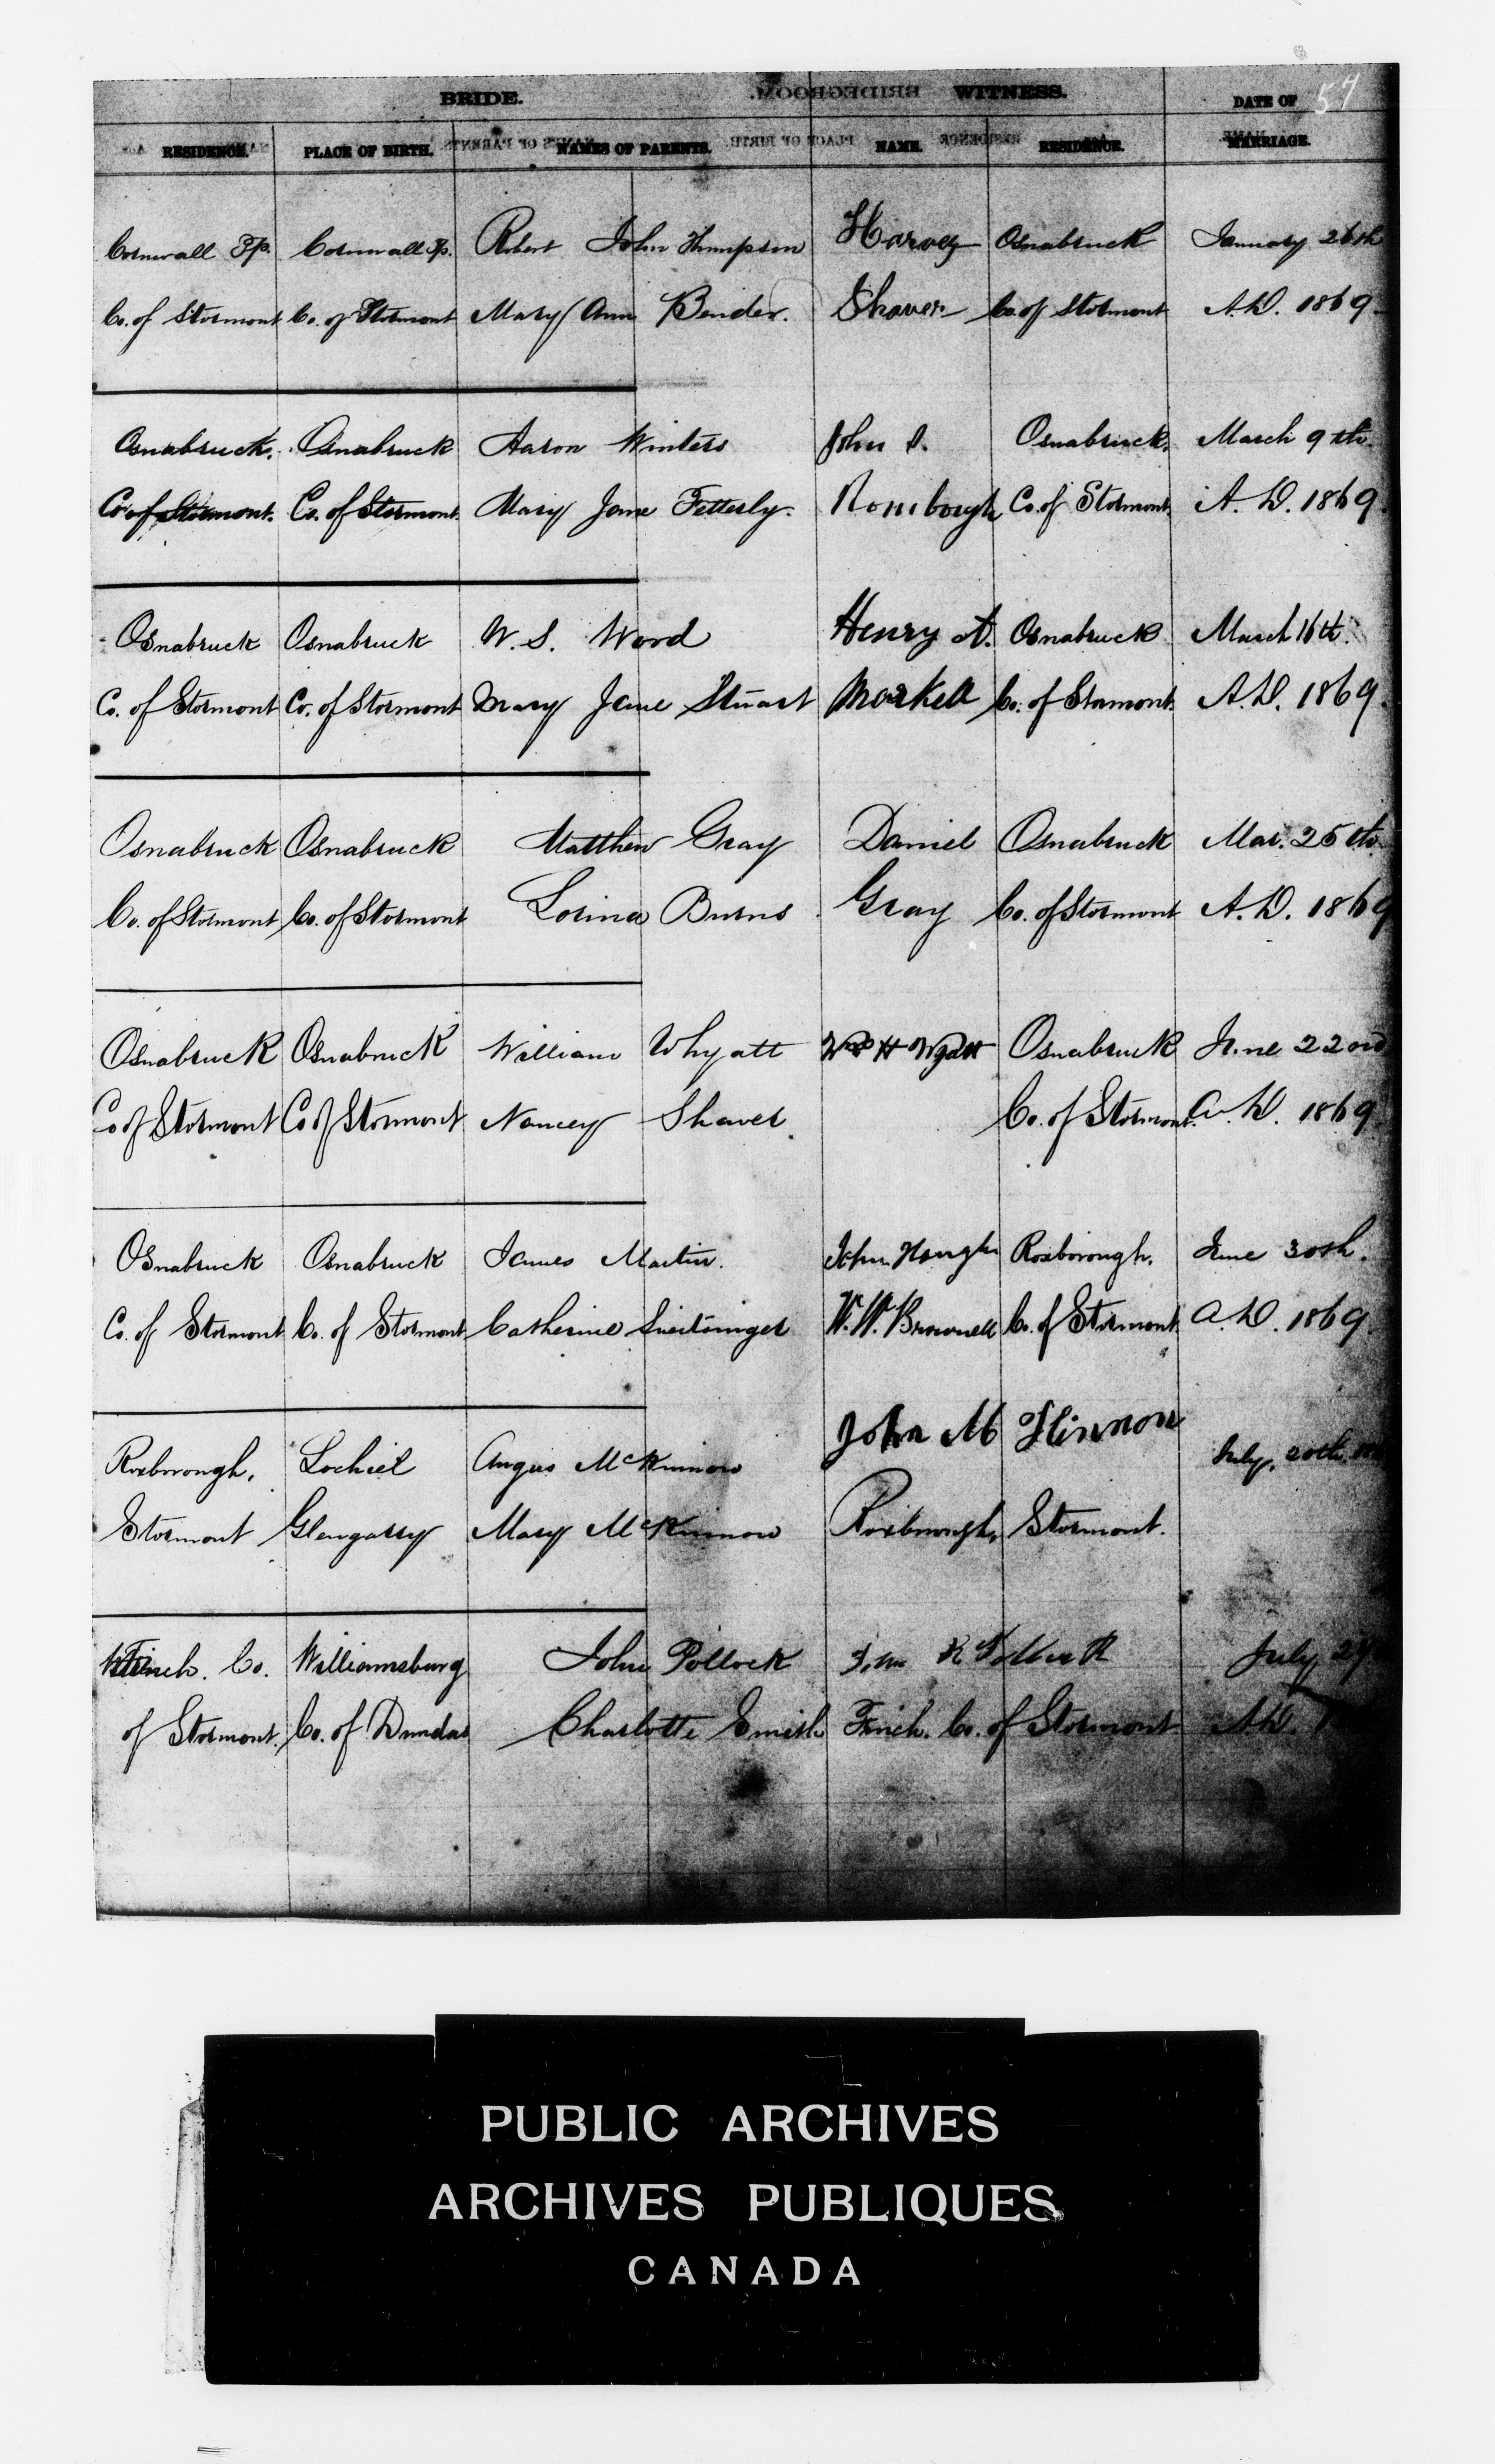 57
BRIDE. WITNESS. DATE OF
RESIDENCE. PLACE OF BIRTH. NAMES OF PARENTS. NAME. RESIDENCE. MARRIAGE.
Cornwall Tp. Cornwall Tp. Robert John Thompson Harvey Osnabruck January 26th
Co. of Stormont Co. of Stormont Mary Ann Bender. Shaver Co. of Stormont A.D. 1869.
Osnabruck. Osnabruck Aaron Winters John S. Osnabruck. March 9th.
Co. of Stormont. Co. of Stormont. Mary Jane Fetterly. Rombough Co. of Stormont. A.D. 1869.
Osnabruck Osnabruck W. S. Word Henry A. Osnabruck March 16th.
Co. of Stormont Co. of Stormont Mary Jane Stuart Markell Co. of Stormont. A.D. 1869.
Osnabruck Osnabruck Matthew Gray Daniel Osnabruck Mar. 25th
Co. of Stormont Co. of Stormont Lorina Burns Gray Co. of Stormont A.D. 1869
Osnabruck Osnabruck William Whyatt H Wyatt Osnabruck June 22nd
Co of Stormont Co of Stormont Nancy Shaver. Co. of Stormont. A.D. 1869
Osnabruck Osnabruck James Martin. John Hough Roxborough. June 30th.
Co. of Stormont Co. of Stormont Catherine W. W. Brownell Co. of Stormont A.D. 1869.
John Mc Kinnon
Roxborough, Lochiel Angus McKinnon July, 20th
Stormont Glengarry Mary McKinnon Roxborough, Stormont.
Finch. Co. Williamsburg John Pollock July 29
of Stormont. Co. of Dundas Charlotte Smith Finch. Co. of Stormont A.D.
PUBLIC ARCHIVES
ARCHIVES PUBLIQUES
CANADA